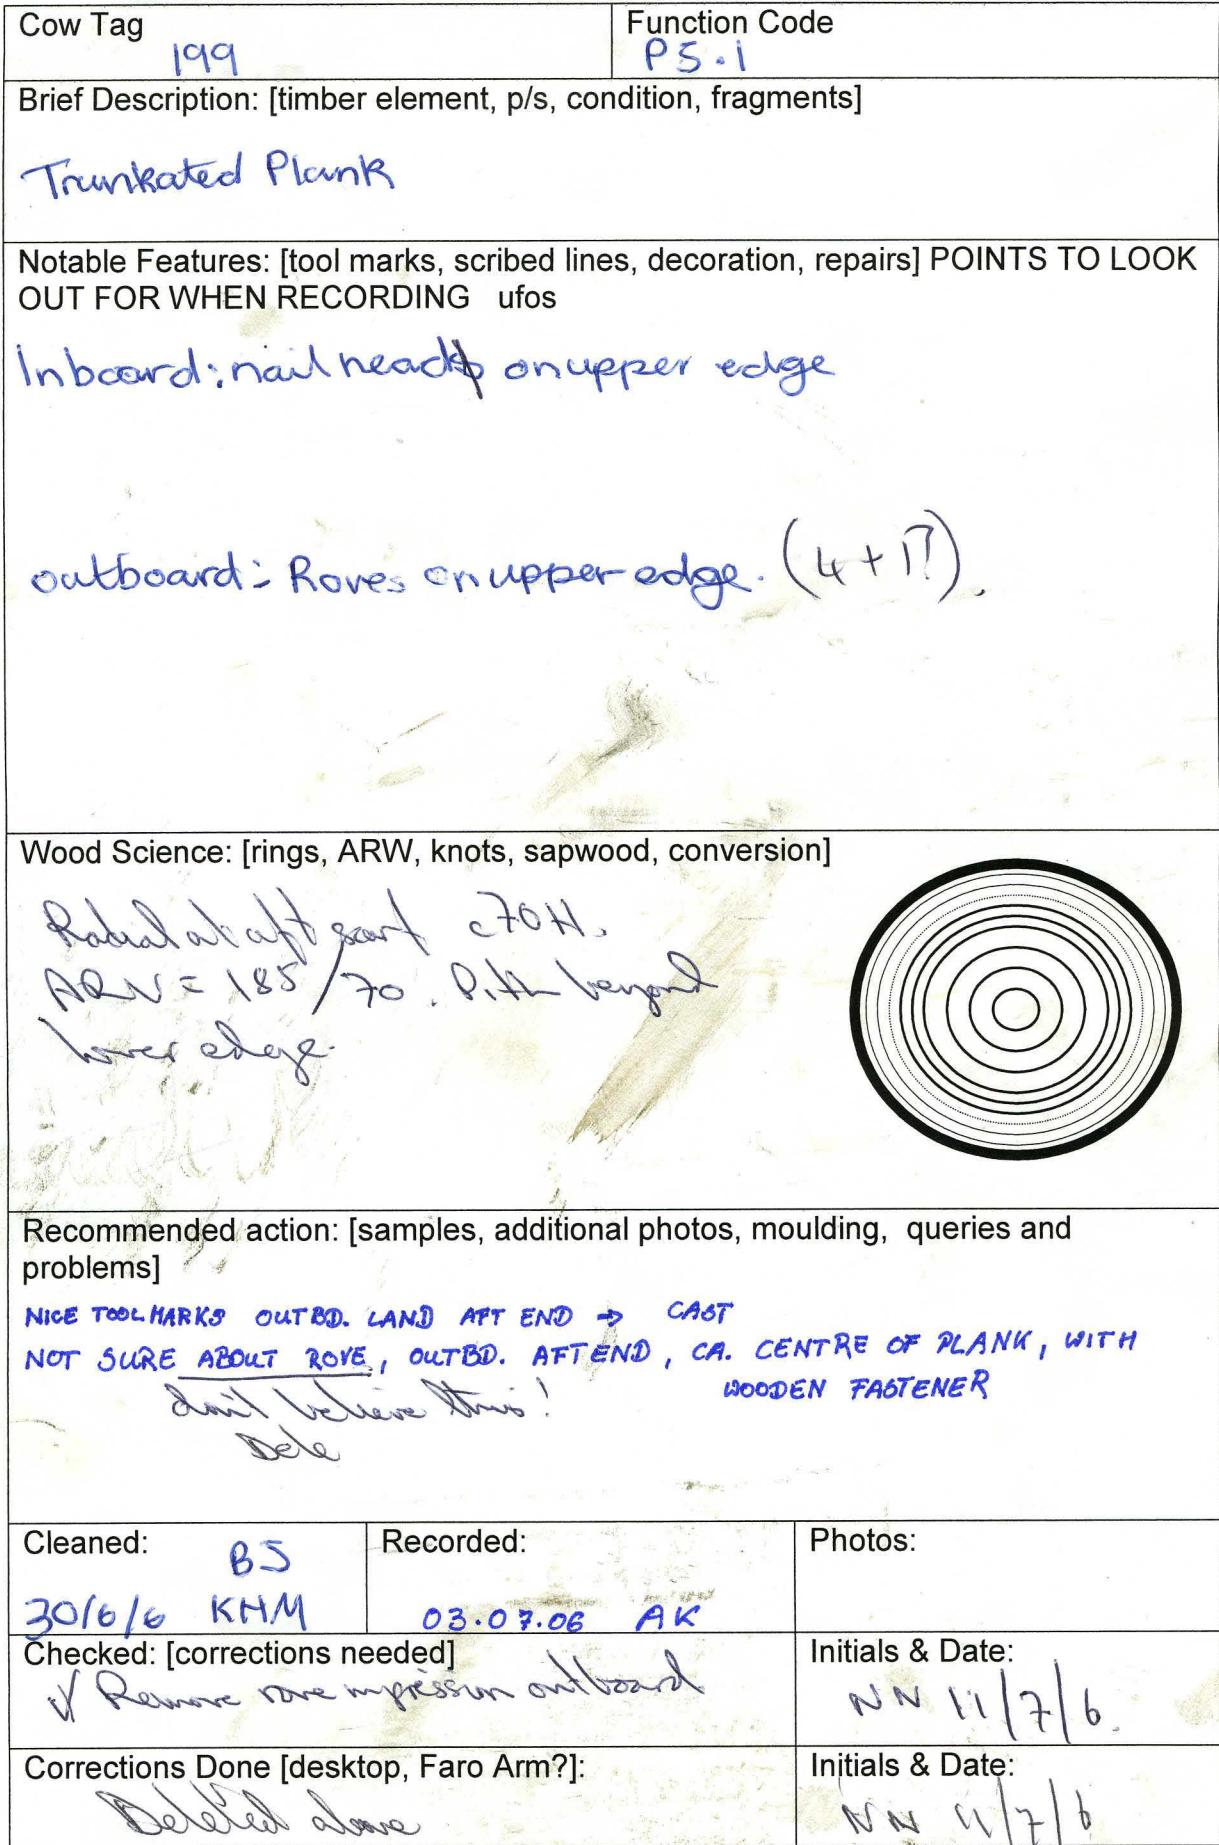 Cow Tag
199
Function Code
P5.1
Brief Description: [timber element, p/s, condition, fragments]
Trunkated Plank
Notable Features: [tool marks, scribed lines, decoration, repairs] POINTS TO LOOK
OUT FOR WHEN RECORDING ufos
Inboard: nail heads on upper edge
outboard: Roves on upper edge. (4 + 1?).
Wood Science: [rings, ARW, knots, sapwood, conversion]
Radial at aft scarf c70H.
ARW = 185/70. Pith beyond
lower edge.
Recommended action: [samples, additional photos, moulding, queries and
problems]
NICE TOOLMARKS OUTBD. LAND AFT END → CAST
NOT SURE ABOUT ROVE, OUTBD. AFT END, CA. CENTRE OF PLANK, WITH
WOODEN FASTENER
don't believe this!
Dele
Cleaned:
BJ
30/6/6 KHM
Recorded:
03.07.06 AK
Photos:
Checked: [corrections needed]
√ Remove rove impression outboard
Initials & Date:
NN 11/7/6.
Corrections Done [desktop, Faro Arm?]:
Deleted above
Initials & Date:
NN 11/7/6